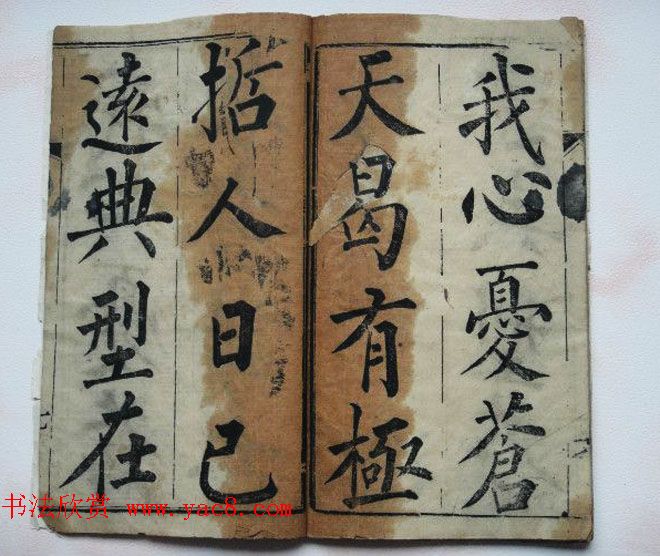 我心憂蒼
天曷有極
哲人日已
遠典型在
书法欣赏 www.yac8.com